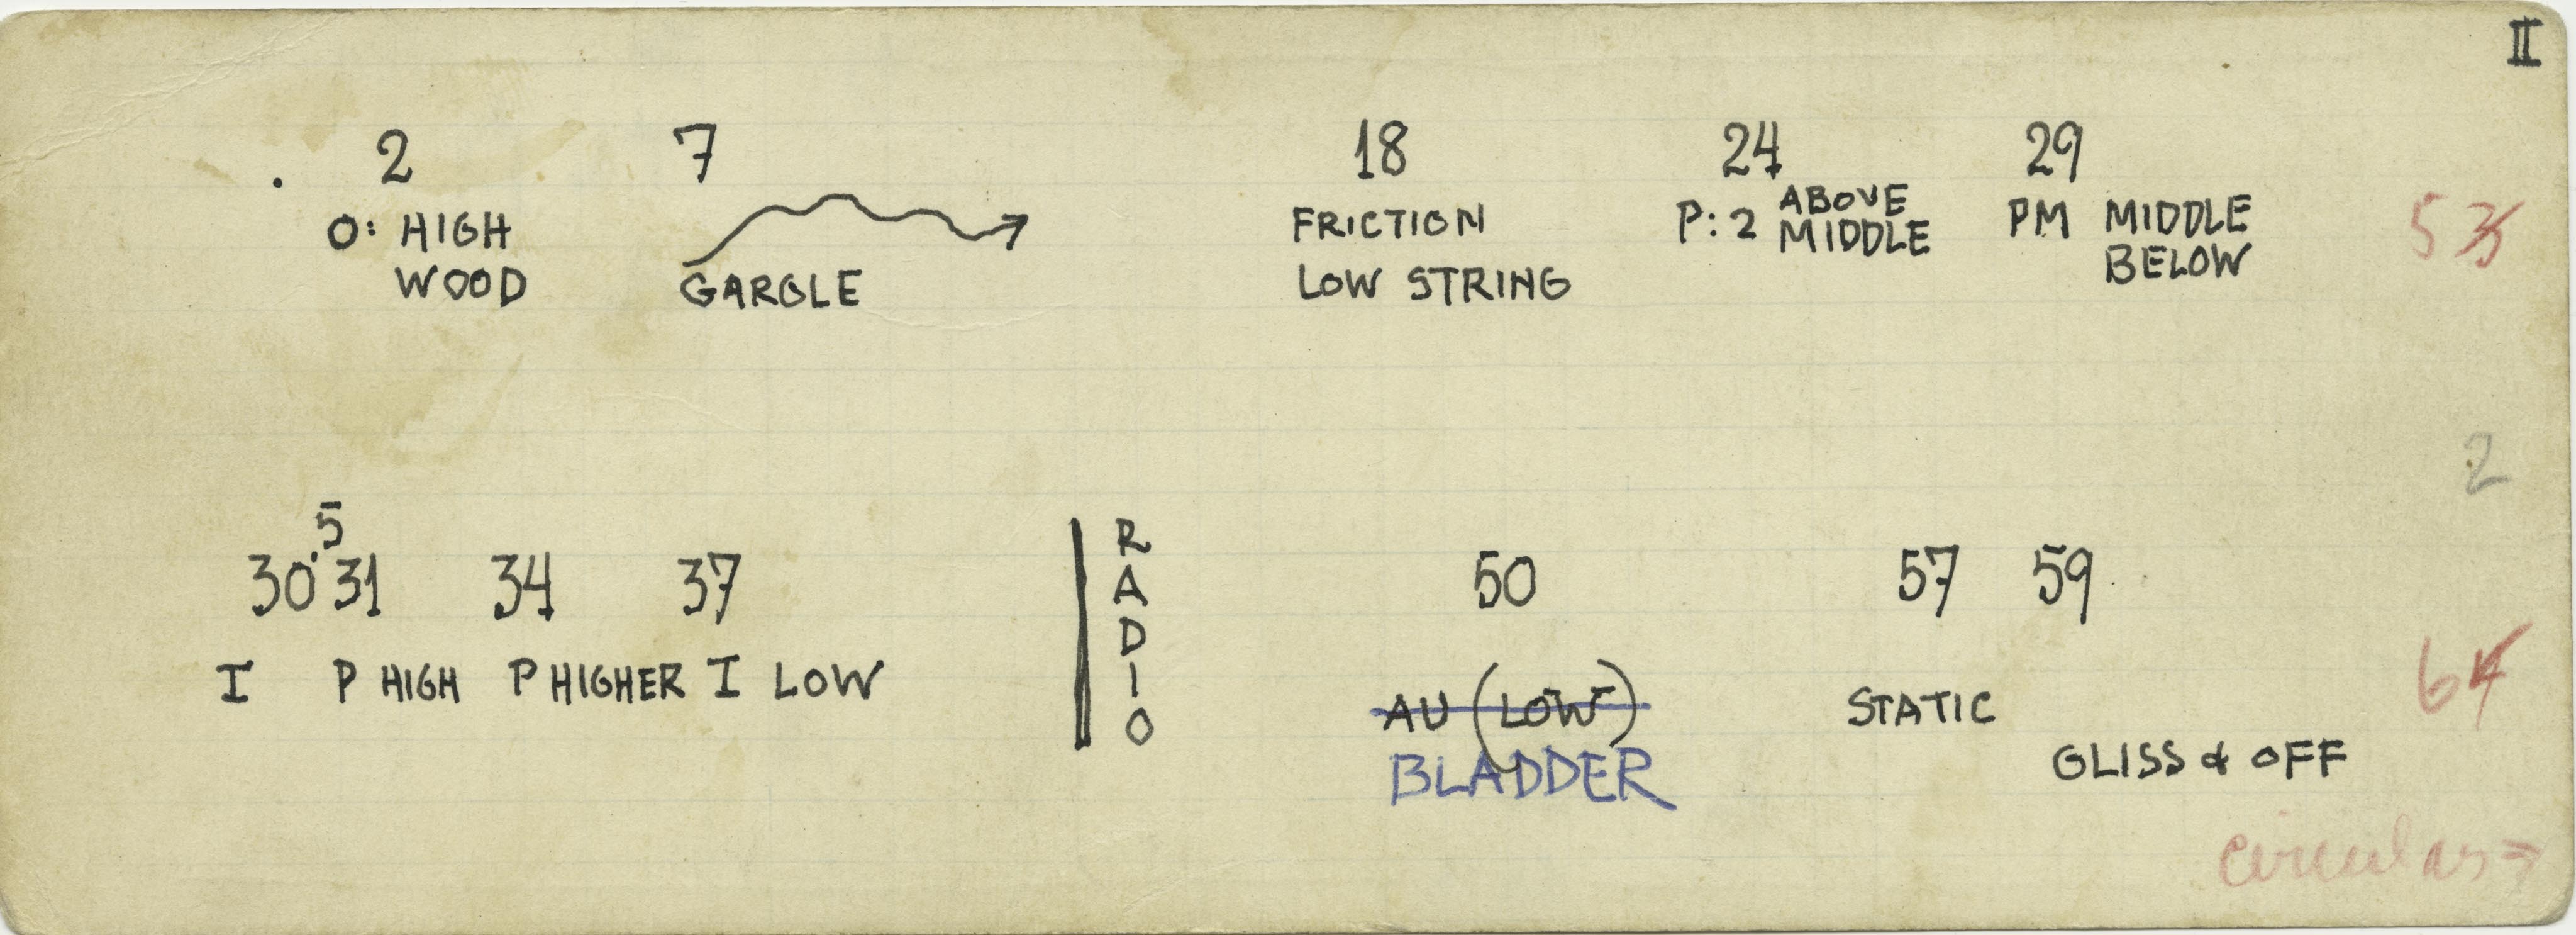 II
2 7 18 24 29
O: HIGH WOOD
GARGLE
FRICTION
LOW STRING
P: 2 ABOVE MIDDLE
PM MIDDLE BELOW
5
2
30.5 31 34 37
I P HIGH P HIGHER I LOW
RADIO
50 57 59
AU (LOW)
BLADDER
STATIC
GLISS & OFF
64
circular